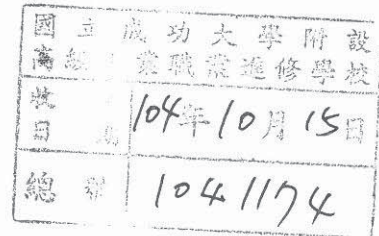 國立成功大學附設
高級工業職業進修學校
收日期 104年10月15日
總號 1041174